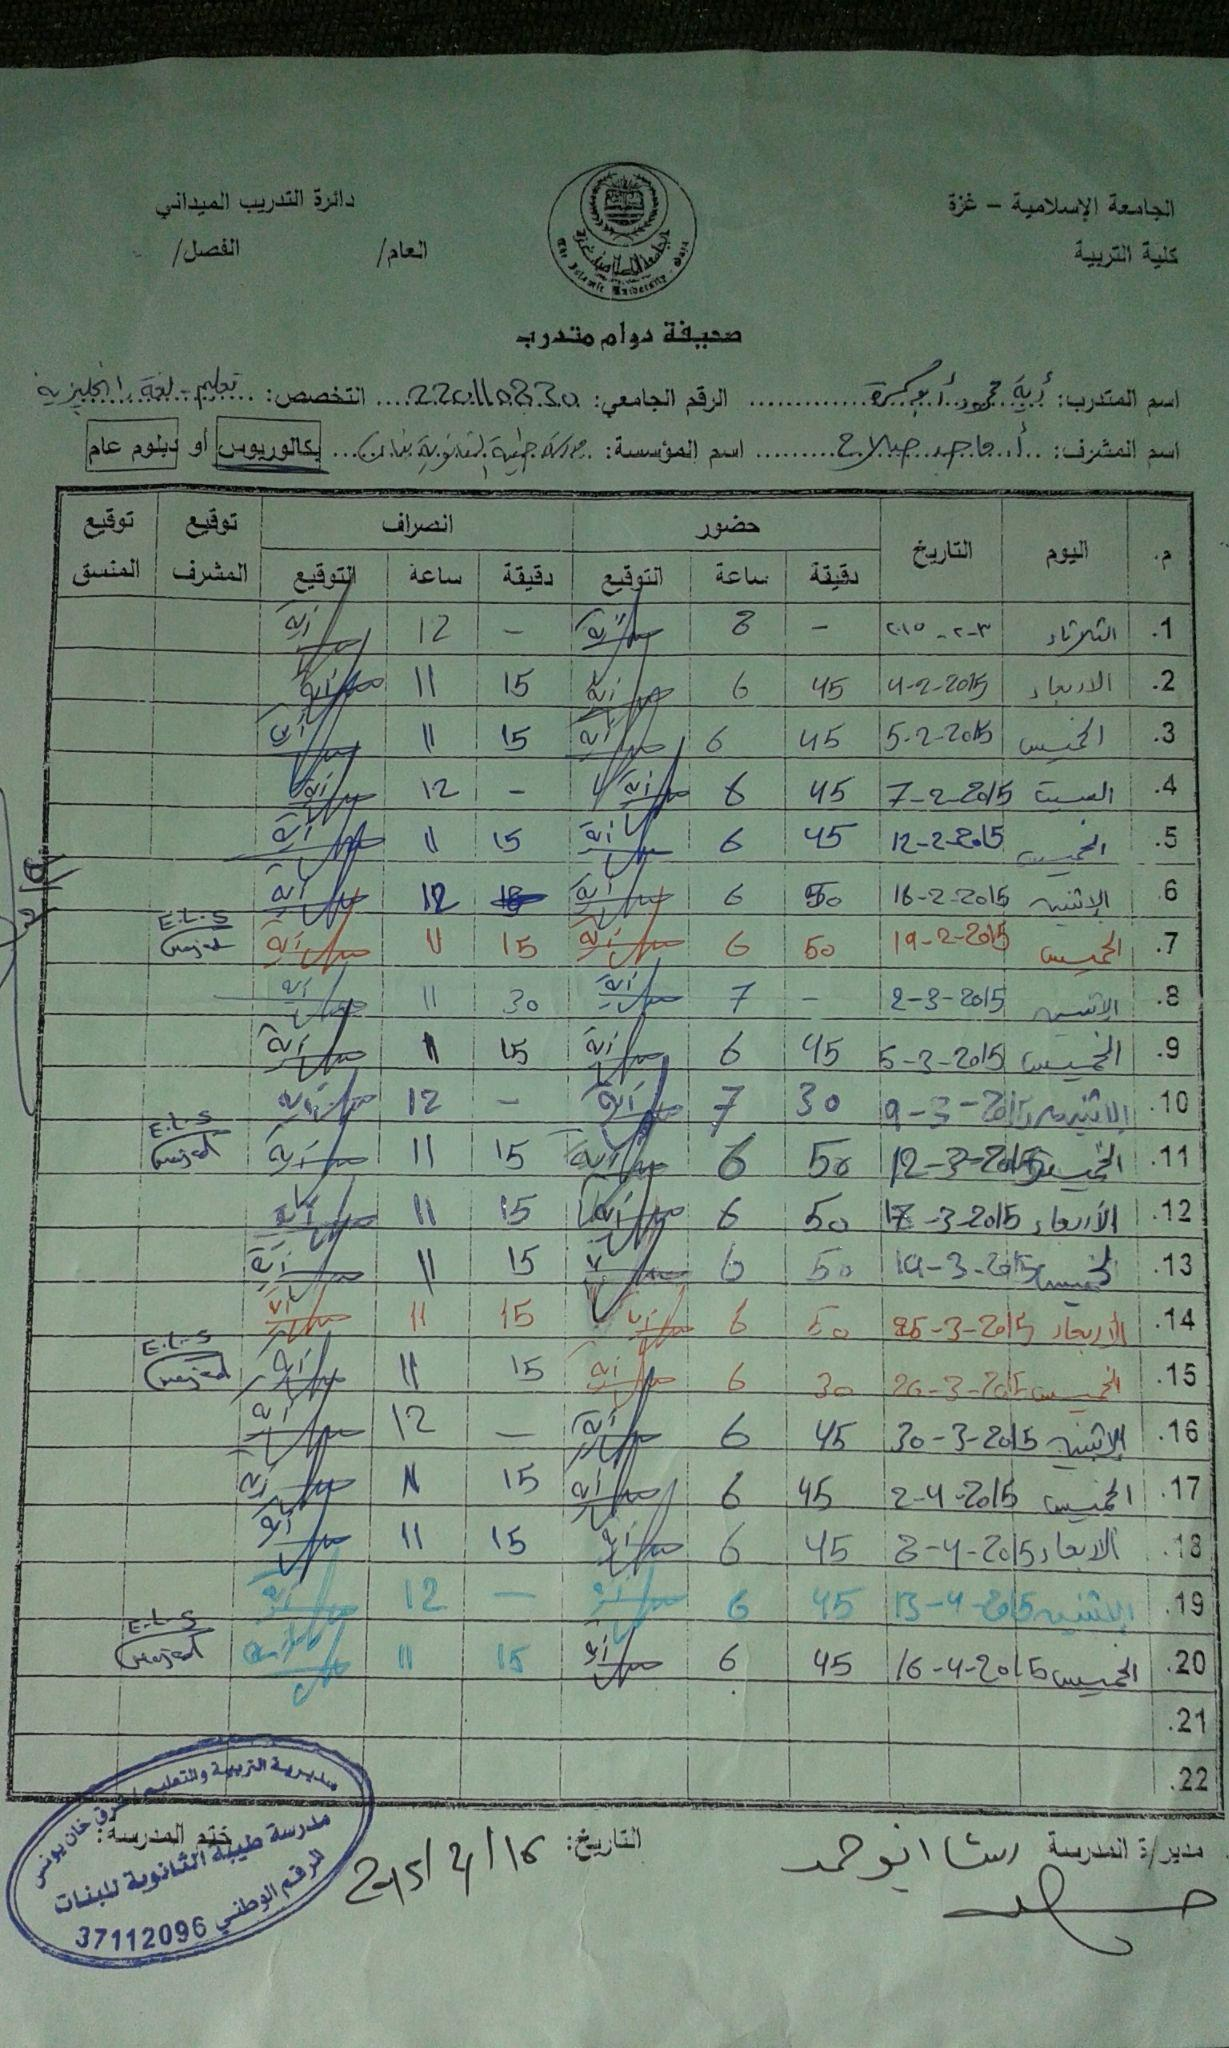 الجامعة الإسلامية - غزة
دائرة التدريب الميداني
كلية التربية
العام/ الفصل/
The Islamic University - Gaza
صحيفة دوام متدرب
اسم المتدرب: آية محمود الرقم الجامعي: 220110230 التخصص: تعليم - لغة إنجليزية
اسم المشرف: أ. ماجد صلاح اسم المؤسسة: بكالوريوس أو دبلوم عام
م. اليوم التاريخ حضور انصراف توقيع المشرف توقيع المنسق
دقيقة ساعة التوقيع دقيقة ساعة التوقيع
.1 الثلاثاء ٣-٢-٢٠١٥ - 8 آية - 12 آية
.2 الاربعاء 4-2-2015 45 6 آية 15 11 آية
.3 الخميس 5-2-2015 45 6 آية 15 11 آية
.4 السبت 7-2-2015 45 6 آية - 12 آية
.5 الخميس 12-2-2015 45 6 آية 15 11 آية
.6 الاثنين 16-2-2015 50 6 آية 12 آية
.7 الخميس 19-2-2015 50 6 آية 15 11 آية E.L.S majed
.8 الاثنين 2-3-2015 - 7 آية 30 11 آية
.9 الخميس 5-3-2015 45 6 آية 15 11 آية
.10 الاثنين 9-3-2015 30 7 آية - 12 آية
.11 الخميس 12-3-2015 50 6 آية 15 11 آية E.L.S majed
.12 الأربعاء -3-2015 50 6 آية 15 11 آية
.13 الخميس 19-3-2015 50 6 15 11 آية
.14 الأربعاء 25-3-2015 50 6 آية 15 11 آية
.15 الخميس 26-3-2015 30 6 آية 15 11 آية E.L.S majed
.16 الاثنين 30-3-2015 45 6 آية - 12 آية
.17 الخميس 2-4-2015 45 6 آية 15 11 آية
.18 الاربعاء 8-4-2015 45 6 آية 15 11 آية
.19 الاثنين 13-4-2015 45 6 آية - 12 آية
.20 الخميس 16-4-2015 45 6 آية 15 11 E.L.S majed
.21
.22
مدير/ة المدرسة رشا ابو حمد التاريخ: 2015/4/16 ختم المدرسة:
مديرية التربية والتعليم / شرق خان يونس
مدرسة طيبة الثانوية للبنات
الرقم الوطني 37112096